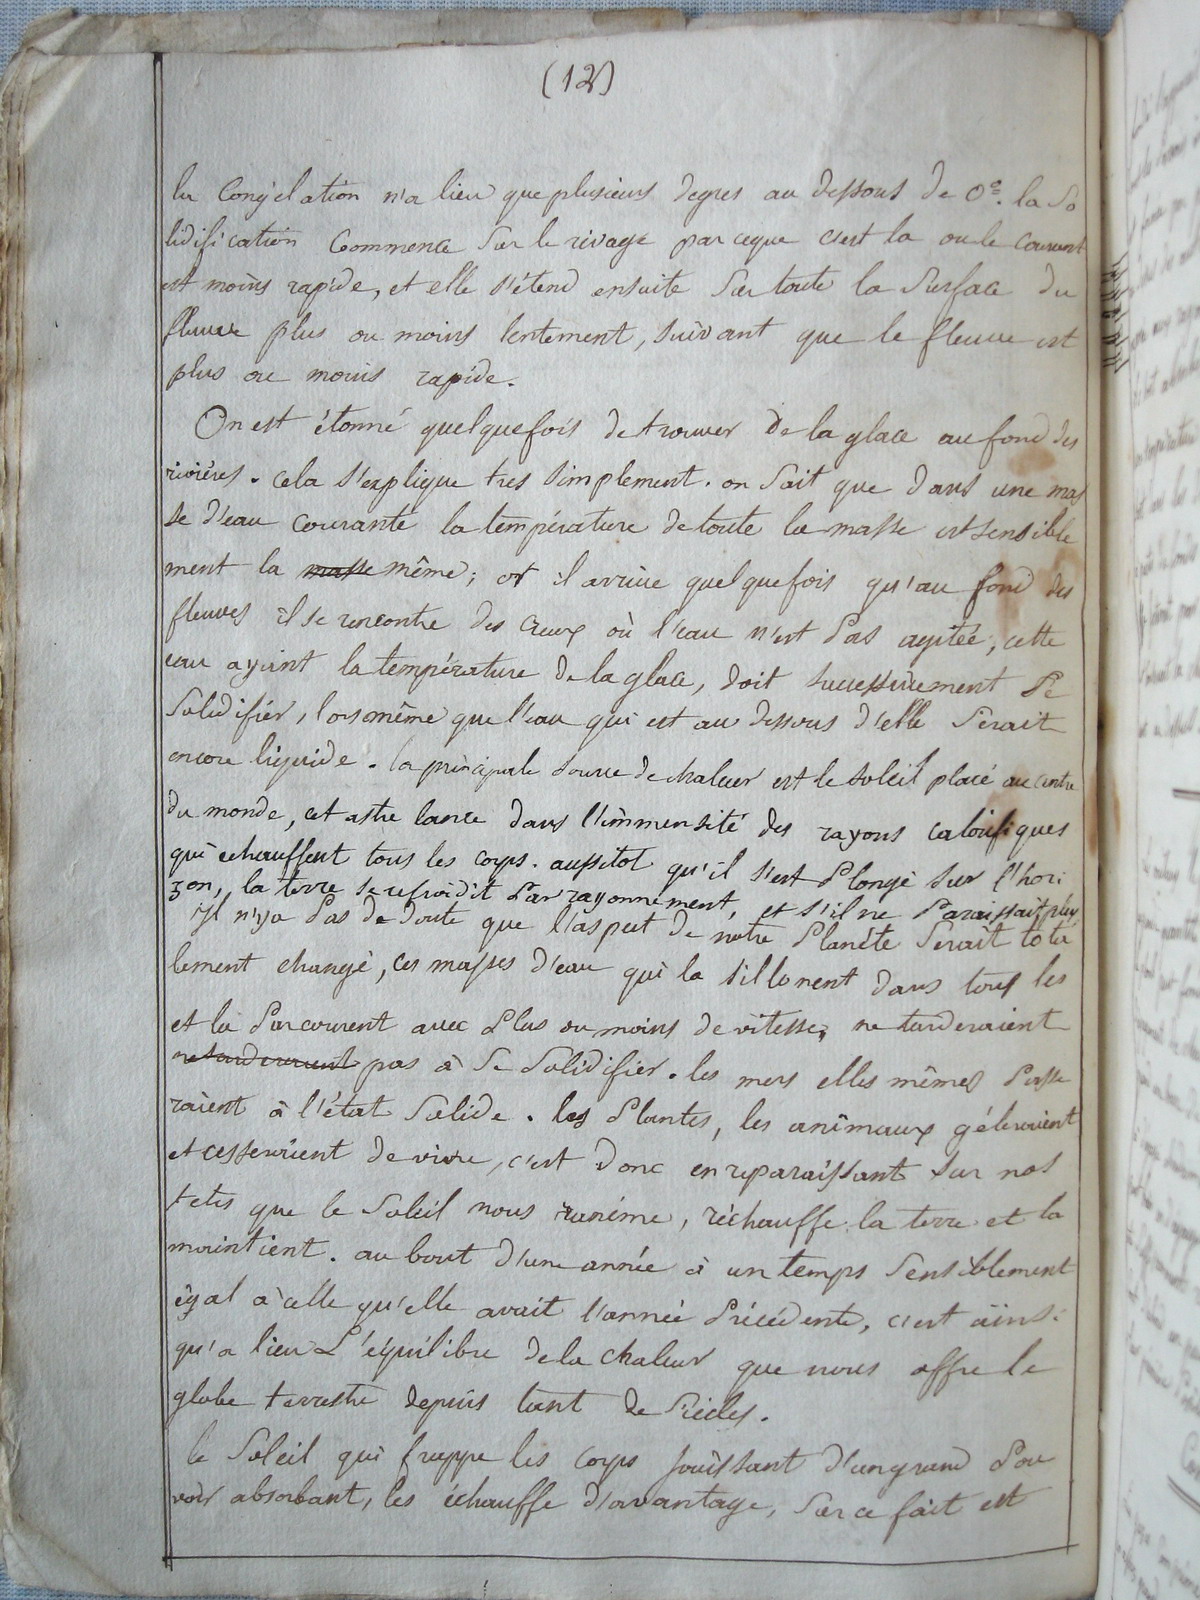 (12)
la Congélation n'a lieu que plusieurs degres au dessous de 0°. la So
lidification Commence Sur le rivage par ceque c'est la ou le courant
est moins rapide, et elle s'étend ensuite Sur toute la Surface du
fleuve plus ou moins lentement, suivant que le fleuve est
plus ou moins rapide.
On est étonné quelquefois de trouver de la glace au fond des
rivières. cela s'explique tres simplement. on Sait que dans une mas
se d'eau courante la température de toute la masse est sensible
ment la masse même; or il arrive quelquefois qu'au fond des
fleuves il se rencontre des creux où l'eau n'est Pas agitée; cette
eau ayant la température de la glace, doit successivement Se
Solidifier, lorsmême que l'eau qui est au dessous d'elle Serait
encore liquide. la principale source de chaleur est le soleil placé au centre
du monde, cet astre lance dans l'immensité des rayons calorifiques
qui echauffent tous les corps. aussitot qu'il s'est Plongé sur l'hori
zon, la terre se refroidit Par rayonnement, et s'il ne Paraissait plus
Il n'ya Pas de doute que l'aspect de notre Planéte Serait tota
lement changé, ces masses d'eau qui la sillonent dans tous les
et la Parcourent avec Plus ou moins de vitesse, ne tarderaient
ne tarderaient pas à Se Solidifier. les mers elles mêmes Passe
raient à l'état Solide. les Plantes, les animaux géleraient
et cesseraient de vivre, c'est donc en reparaissant sur nos
tetes que le Soleil nous ranime, réchauffe la terre et la
maintient. au bout d'une année à un temps Sensiblement
égal à celle qu'elle avait l'année Précédente, c'est ainsi
qu'a lieu L'équilibre de la chaleur que nous offre le
globe terrestre depuis tant de Siécles.
le Soleil qui frappe les corps jouissant d'un grand Pou
voir absorbant, les échauffe d'avantage, Sur ce fait est